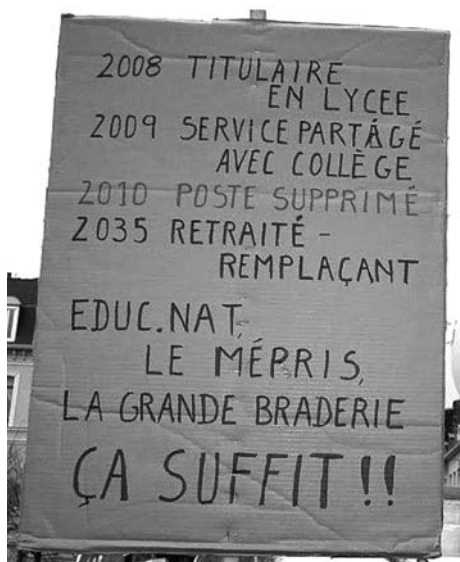 2008 TITULAIRE
EN LYCEE
2009 SERVICE PARTÁGÉ
AVEC COLLÈGE
2010 POSTE SUPPRIMÉ
2035 RETRAITÉ -
REMPLAÇANT
EDUC.NAT,
LE MÉPRIS,
LA GRANDE BRADERIE
ÇA SUFFIT !!